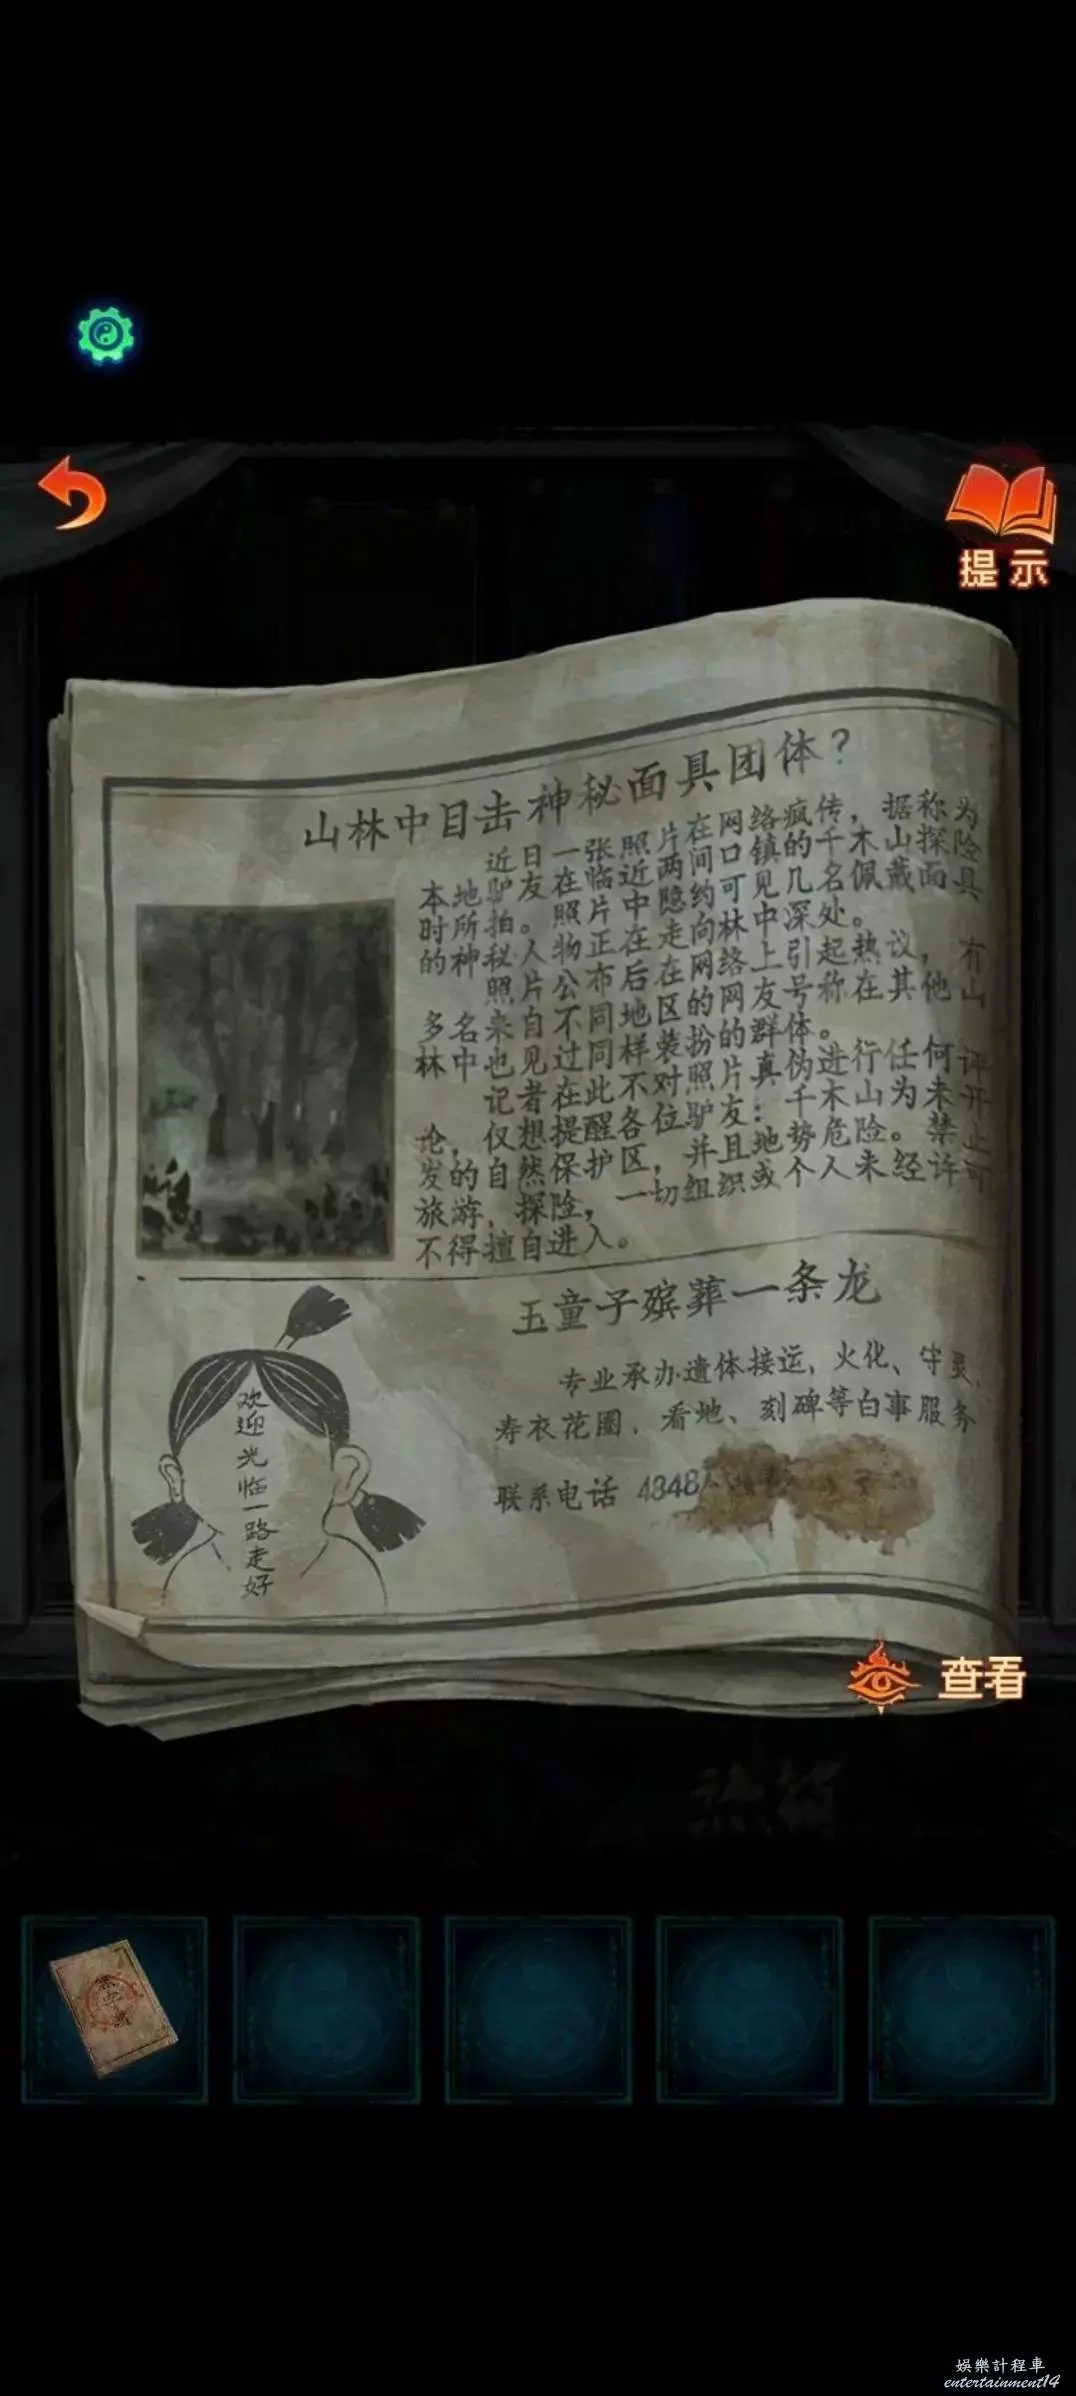 提示
山林中目击神秘面具团体？
近日一张照片在网络疯传，据称为
本地驴友在临近两间口镇的千木山探险
时所拍。照片中隐约可见几名佩戴面具
的神秘人物正在走向林中深处。
照片公布后在网络上引起热议，有
多名来自不同地区的网友号称在其他山
林中也见过同样装扮的群体。
记者在此不对照片真伪进行任何评
论，仅想提醒各位驴友：千木山为未开
发的自然保护区，并且地势危险。禁止
旅游，探险，一切组织或个人未经许可
不得擅自进入。
五童子殡葬一条龙
专业承办遗体接运，火化、守灵，
寿衣花圈，看地、刻碑等白事服务
联系电话 4848
欢迎光临一路走好
查看
娛樂計程車
entertainment14